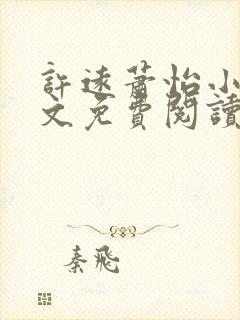 許遠蕭怡小
文免費閱讀
秦飛